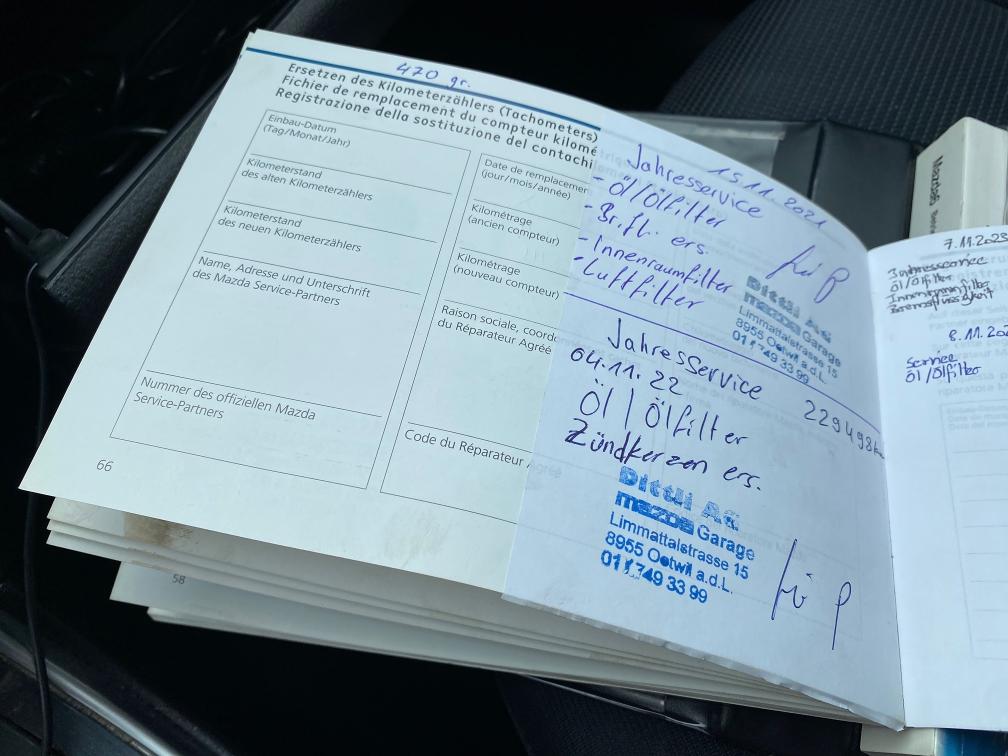 470 gr.
Ersetzen des Kilometerzählers (Tachometers)
Fichier de remplacement du compteur kilomé
Registrazione della sostituzione del contachi
Einbau-Datum
(Tag/Monat/Jahr)
Kilometerstand
des alten Kilometerzählers
Kilometerstand
des neuen Kilometerzählers
Name, Adresse und Unterschrift
des Mazda Service-Partners
Nummer des offiziellen Mazda
Service-Partners
66
58
Date de remplacemen
(jour/mois/année)
Kilométrage
(ancien compteur)
Kilométrage
(nouveau compteur)
Raison sociale, coord
du Réparateur Agréé
Code du Réparateur Agréé
15.11.2021
Jahresservice
- Öl/Ölfilter
- Br.fl. ers.
- Innenraumfilter
- Luftfilter
Dittli AG
mazda Garage
Limmattalstrasse 15
8955 Oetwil a.d.L.
01 / 749 33 99
Jahresservice
04.11.22
229498k
Öl / Ölfilter
Zündkerzen ers.
Dittli AG
mazda Garage
Limmattalstrasse 15
8955 Oetwil a.d.L.
01 / 749 33 99
Mazda6
7.11.2023
Jahresservice
Öl/Ölfilter
Innenraumfilter
Bremsflüssigkeit
8.11.202
Service
Öl/Ölfilter